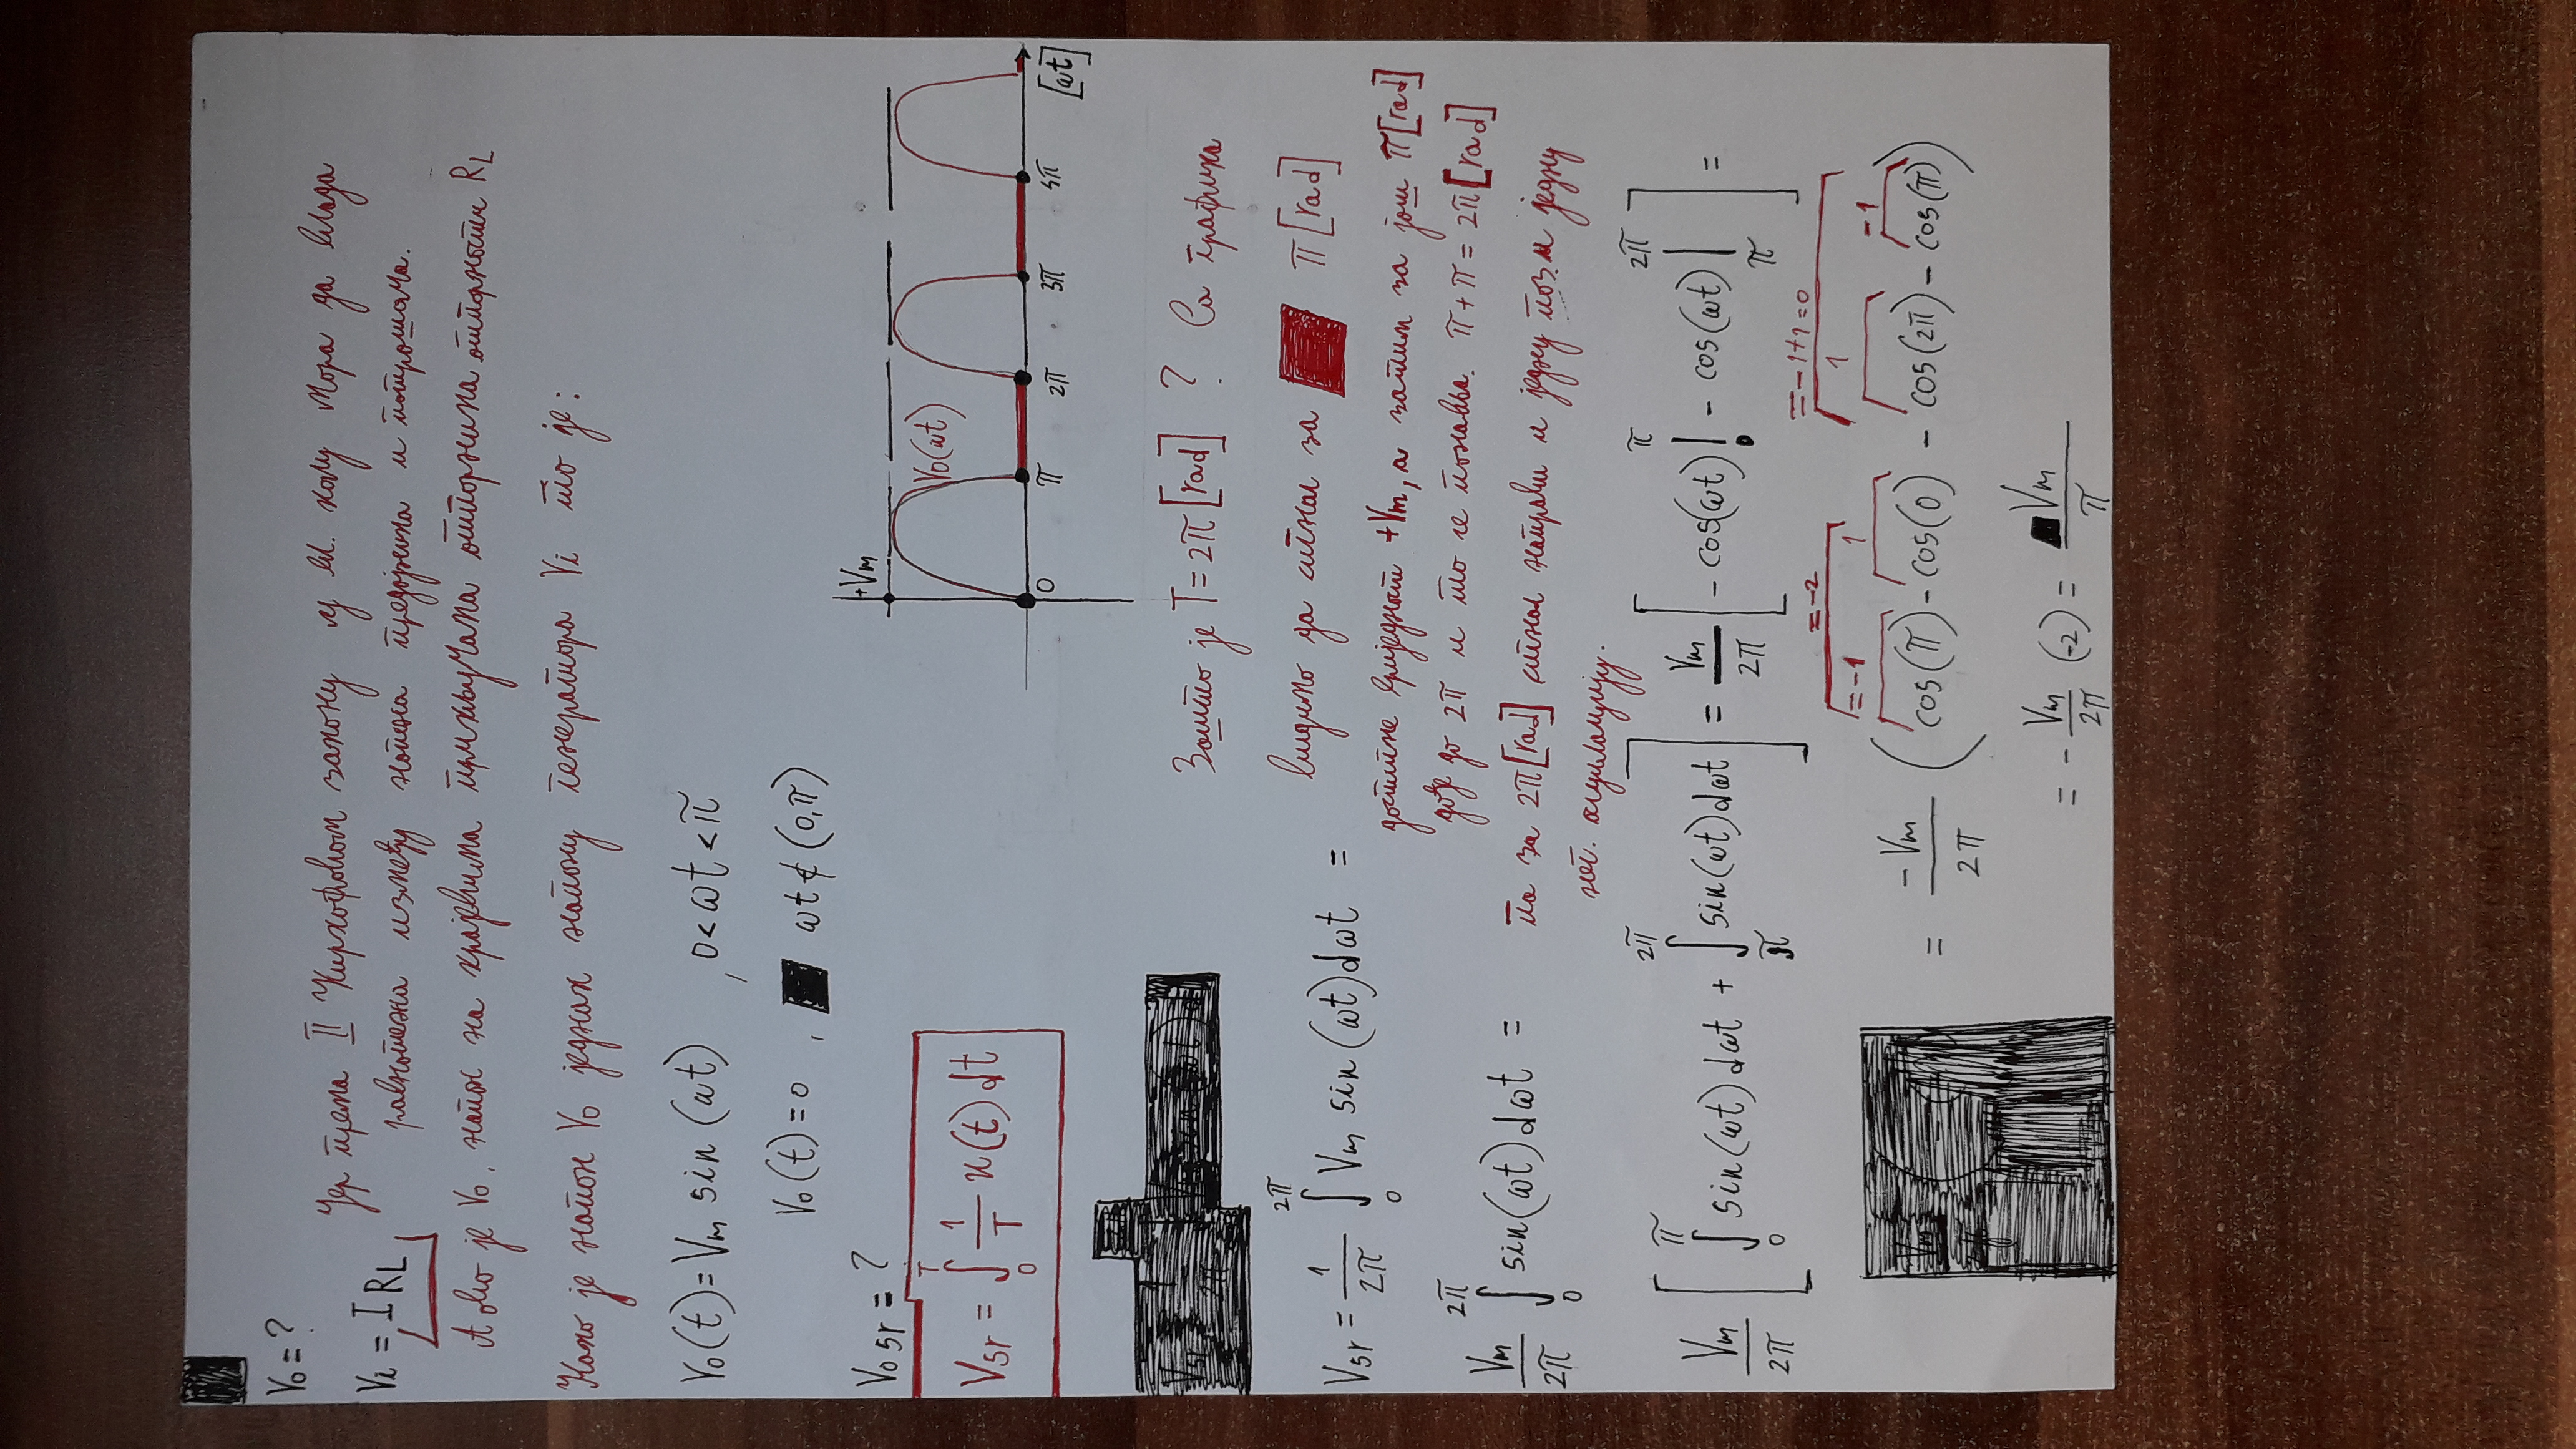 V₀ = ?
Јер према II Кирхофовом закону у ел. колу мора да влада
Vi = I RL
равнотежа између напона предајника и потрошача.
А ово је V₀, напон на крајевима прикључака отпорника отпорности RL
Како је напон V₀ једнак напону генератора Vi то је:
V₀(t) = Vm sin (ωt) , 0 < ωt < π
V₀(t) = 0 , ωt ∉ (0,π)
V₀ sr = ?
Vsr = ∫₀ᵀ 1/T u(t) dt
+Vm
V₀(ωt)
0 π 2π 3π 4π [ωt]
Зашто је T = 2π [rad] ? Са графика
видимо да сигнал за π [rad]
достигне вриједност +Vm, а затим за још π [rad]
дође до 2π и то се понавља. π + π = 2π [rad]
па за 2π [rad] сигнал направи и једну поз. и једну
нег. осцилацију.
Vsr = 1/2π ∫₀^2π Vm sin (ωt) dωt =
Vm/2π ∫₀^2π sin(ωt) dωt =
Vm/2π [ ∫₀^π sin(ωt) dωt + ∫π^2π sin(ωt) dωt ] = Vm/2π [ - cos(ωt) |₀^π - cos(ωt) |π^2π ] =
= -2 = -1+1 = 0
= -1 1 1 -1
= -Vm/2π ( cos(π) - cos(0) - cos(2π) - cos(π) )
= - Vm/2π (-2) = Vm/π